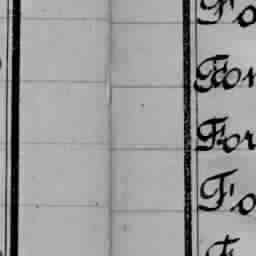 Fo
For
For
Fo
F